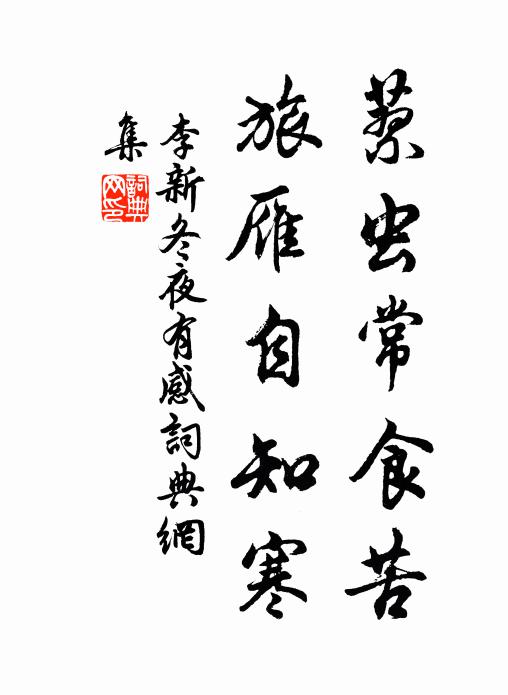 蔾虫常食苦
旅雁自知寒
李新冬夜有感詞典網
集
詞典
网印